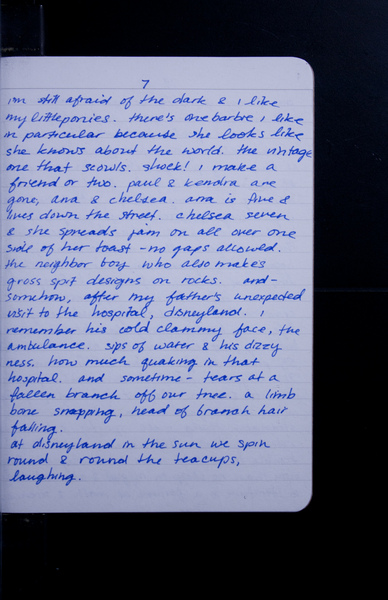 7
im still afraid of the dark & i like
my little ponies. there's one barbie i like
in particular because she looks like
she knows about the world. the vintage
one that scowls. shock! i make a
friend or two. paul & kendra are
gone, ana & chelsea. ana is five &
lives down the street. chelsea seven
& she spreads jam on all over one
side of her toast - no gaps allowed.
the neighbor boy who also makes
gross spit designs on rocks. and -
somehow, after my father's unexpected
visit to the hospital, disneyland. i
remember his cold clammy face, the
ambulance. sips of water & his dizzy
ness. how much quaking in that
hospital. and sometime - tears at a
fallen branch off our tree. a limb
bone snapping, head of branch hair
falling.
at disneyland in the sun we spin
round & round the teacups,
laughing.